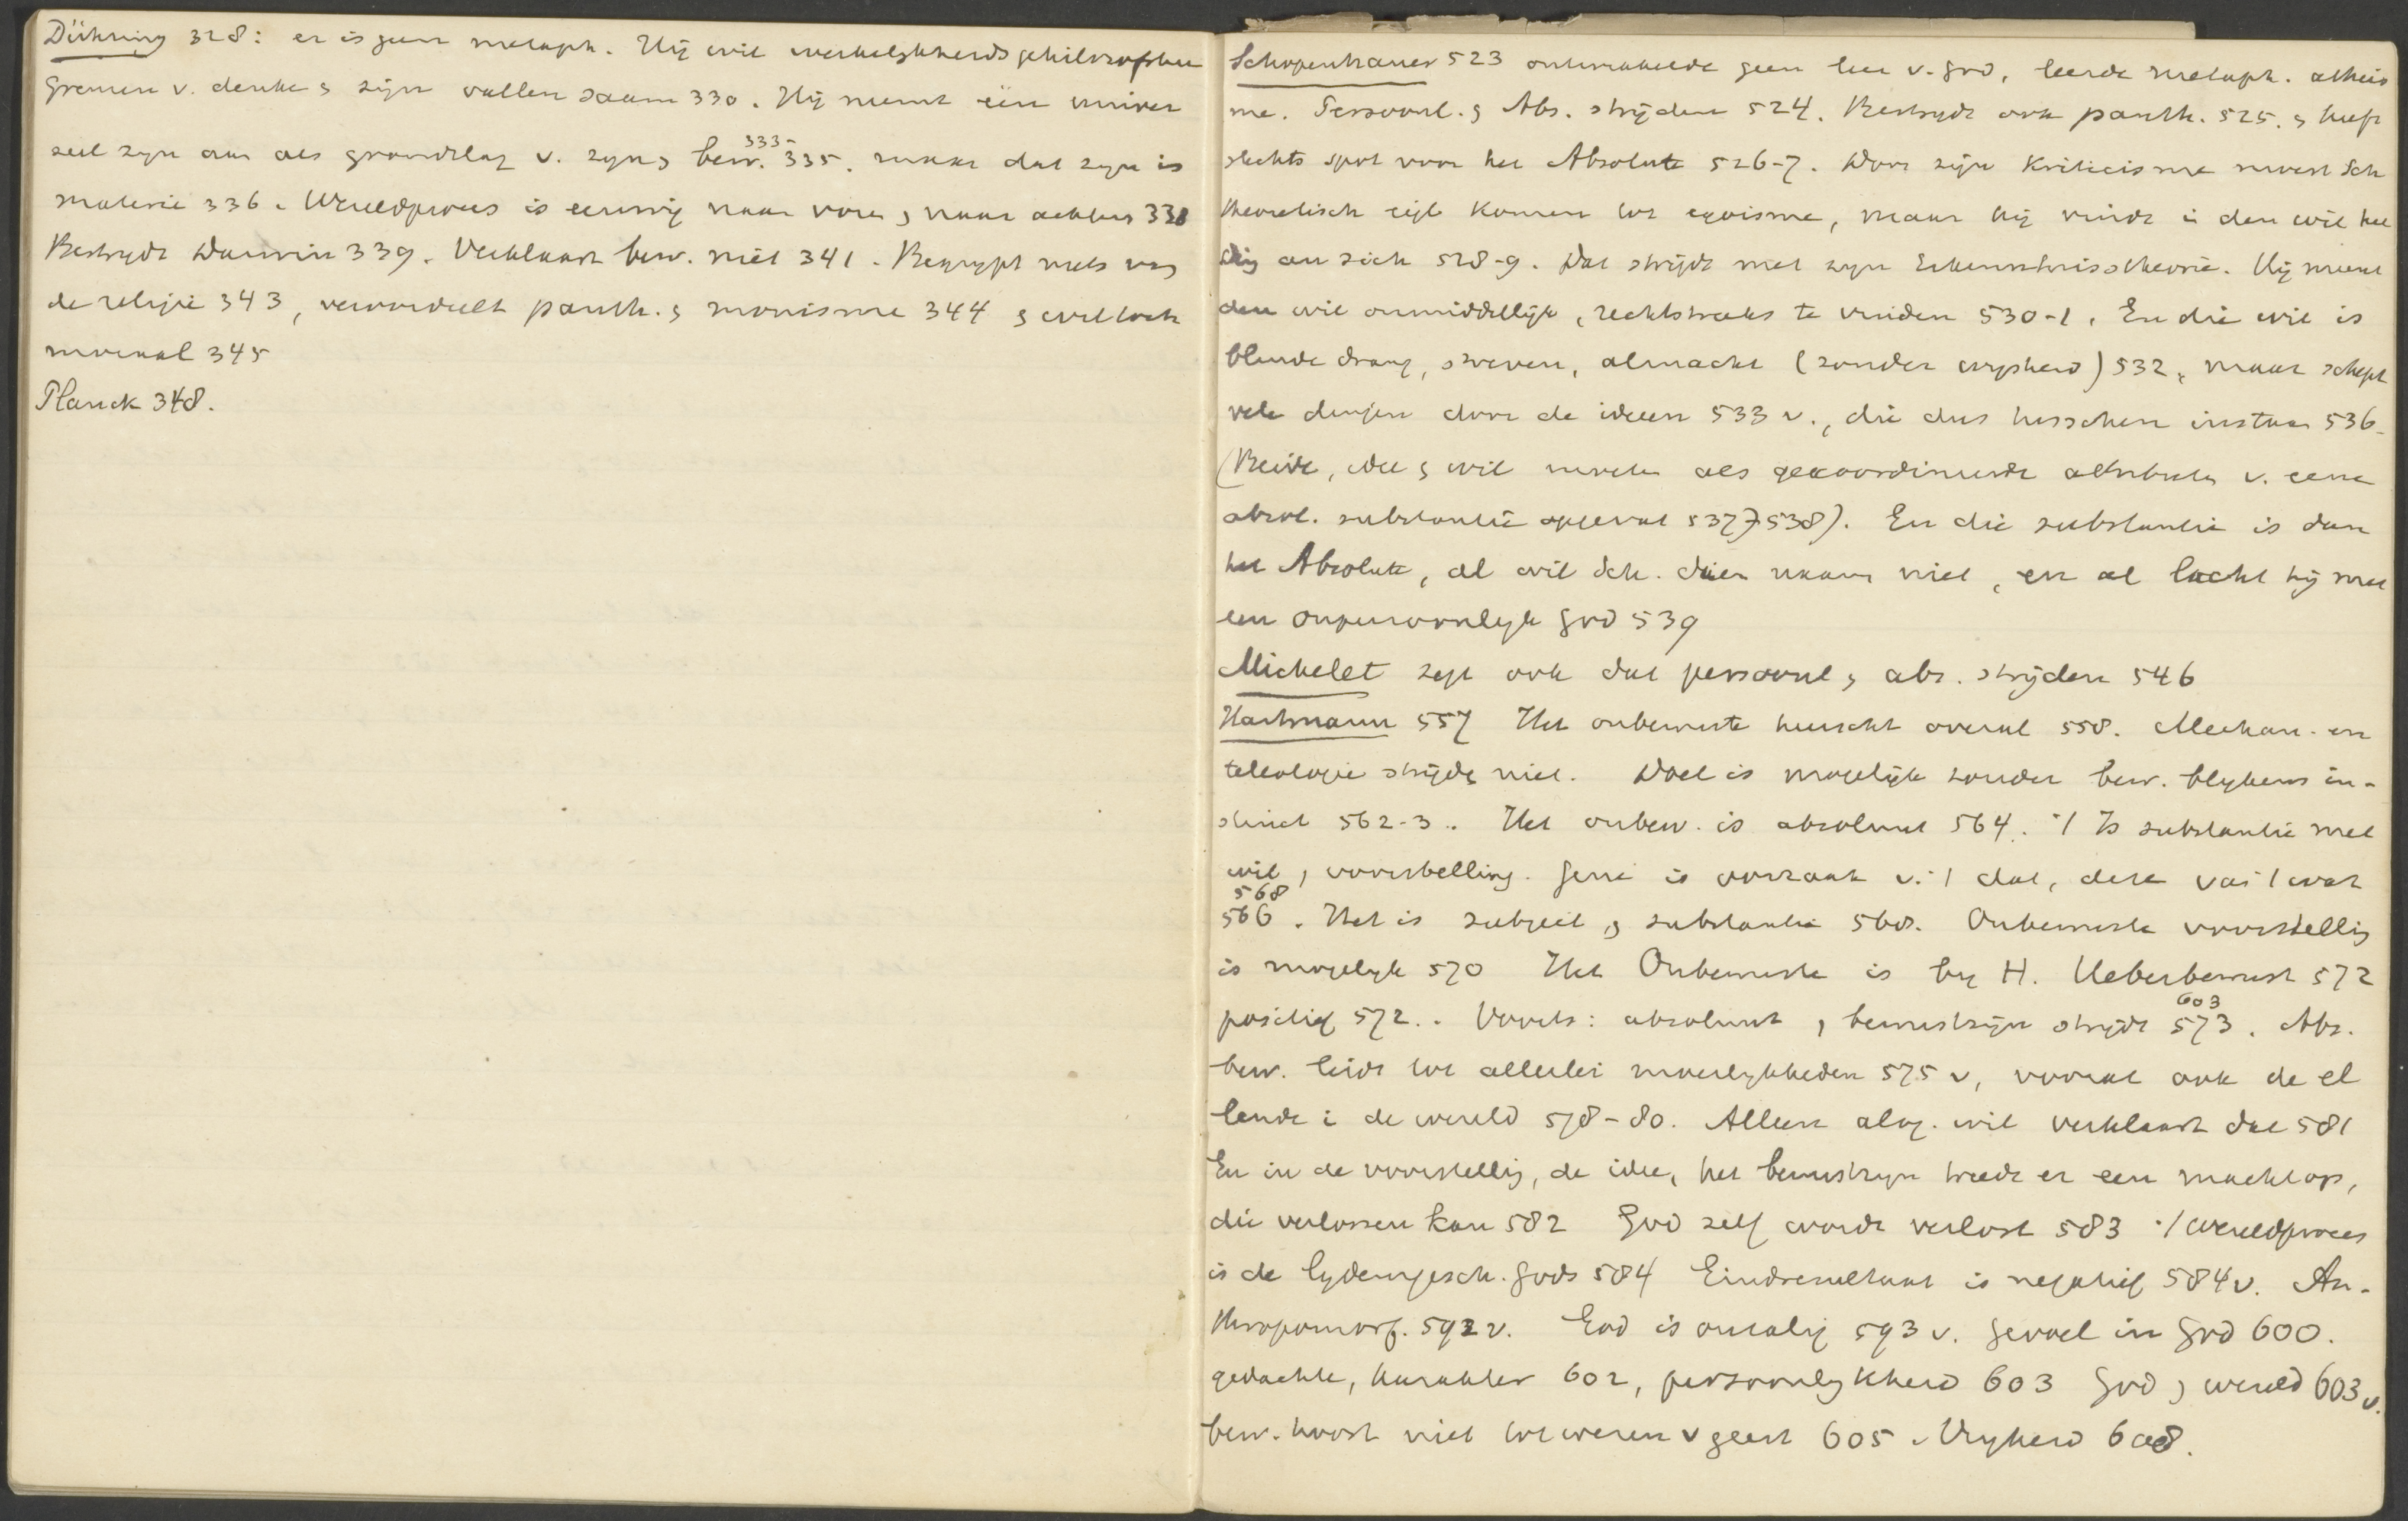 Dühring 328: er is geen metaph. Hij wil werkelijkheidsphilosophie
Grenzen v. denken & zijn vallen saam 330. Hij neemt één univer
seel zyn aan als grondslag v. zyn & bew. 335 335. maar dat zyn is
materie 336. Wereldproces is eeuwig naar voren & naar achter 338
Bestrydt Darwin 339. Verklaart bew. niet 341. Begrypt niets van
de religie 343, veroordeelt panth. & monisme 344 & wil toch
moraal 345
Planck 348.
Schopenhauer 523 ontwikkelde geen leer v. God, leerde metaph. atheis
me. Persoonl. & Abs. strijden 524. Bestrydt ook panth. 525. & heeft
slechts spot voor het Absolute 526-7. Door zijn Kriticisme moest Sch
theoretisch eigl. komen tot egoisme, maar hij vindt i den wil het
Ding an sich 528-9. Dat strijdt met zyn Erkenntnistheorie. Hij meent
den wil onmiddellijk, rechtstreeks te vinden 530-1. En die wil is
blinde drang, streven, almacht (zonder wysheid) 532, maar schept
vele dingen door de ideen 533 v., die dus tusschen instaan 536.
(Beide, idee & wil moeten als gekoordineerde attributen v. eene
absol. substantie opgevat 537, 538). En die substantie is dan
het Absolute, al wil Sch. dien naam niet, en al lacht hij met
een onpersoonlyk God 539
Michelet zegt ook dat persoonl & abs. strijden 546
Hartmann 557 Het onbewuste heerscht overal 558. Mechan. en
teleologie strijden niet. Doel is mogelijk zonder bew. blykens in-
stinct 562-3. Het onbew. is absoluut 564. '/ Is substantie met
wil & voorstelling. Gene is oorzaak v. '/ dat, deze van '/ wat
568
566. Het is subject & substantie 568. Onbewuste voorstelling
is mogelyk 570 Het Onbewuste is by H. Ueberbewust 572
positief 572.. Voorts: absoluut & bewustzijn strijdt 573 603. Abs.
bew. leidt tot allerlei moeilykheden 575 v, vooral ook de el
lende i de wereld 578-80. Alleen alog. wil verklaart dat 581
En in de voorstelling, de idee, het bewustzyn treedt er een macht op,
die verlossen kan 582 God zelf wordt verlost 583 '/ wereldproces
is de lydensgesch. Gods 584 Eindresultaat is negatief 584 v. An-
thropomorf. 592 v. God is onzalig 593 v. Gevoel in God 600.
gedachte, karakter 602, persoonlykheid 603 God & wereld 603 v.
bew. hoort niet tot wezen v geest 605. Vryheid 608.